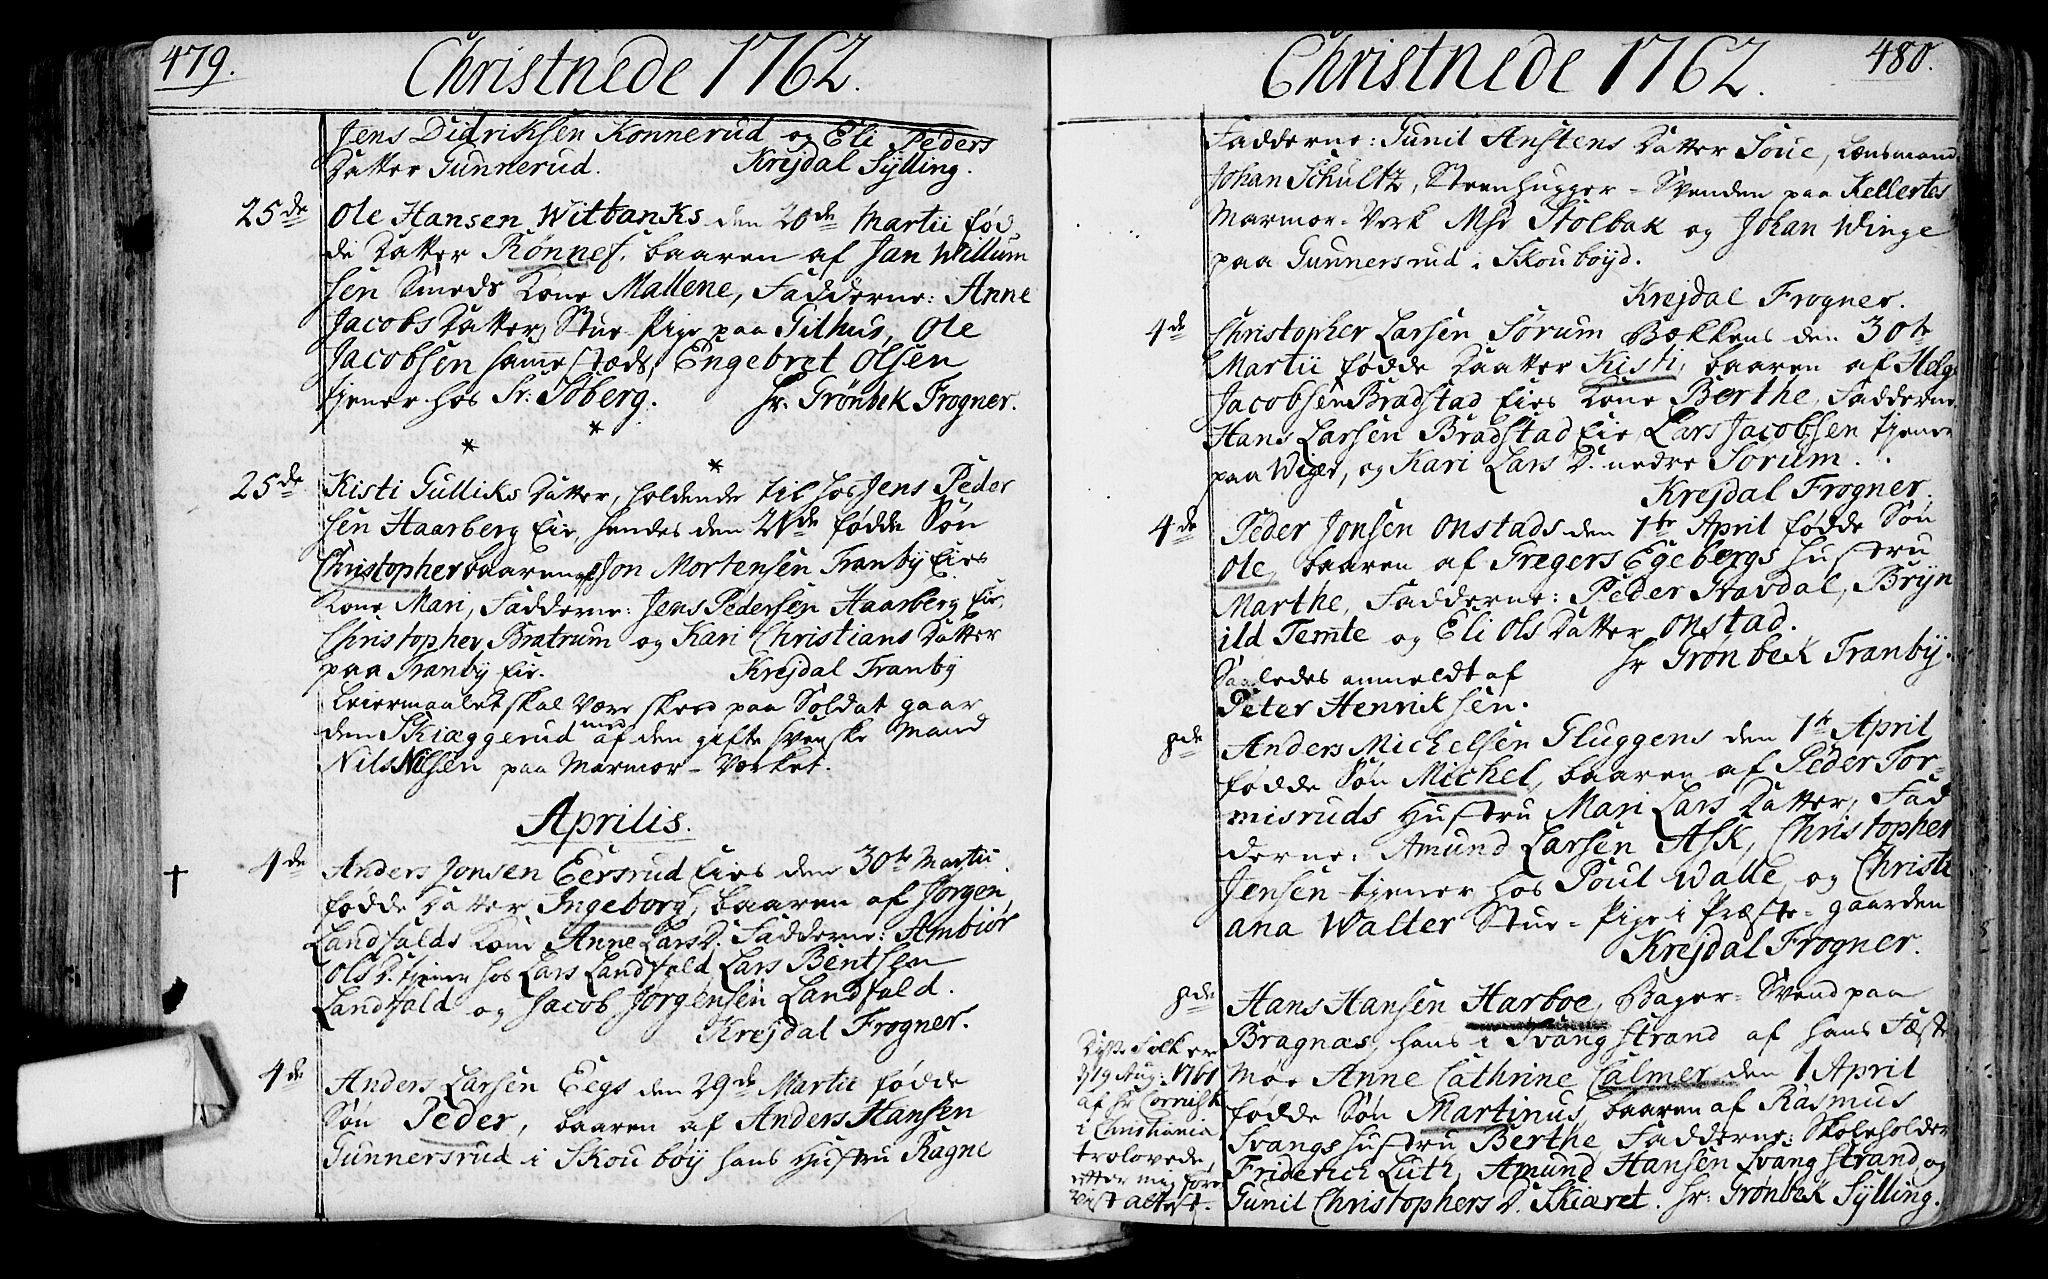 479.
Christnede 1762.
Jens Didriksen Konnerud og Eli Peders
Datter Gunnerud. Krejdal Sylling.
25de Ole Hansen Witbanks den 20de Martii fød-
de Datter Rønnef, baaren af Jan Willum
sen Smeds Kone Mallene, Fadderne: Anne
Jacobs Datter, Stue-Pige paa Gilhus, Ole
Jacobsen sammestæds, Engebret Olsen
tjener hos Sr: Soberg. Hr: Grønbek Frogner.
25de Kisti Gulliks Datter, holdende til hos Jens Peder
sen Haarberg Eie, hendes den 21de fødde Søn
Christopher baaren af Jon Mortensen Tranby Eies
Kone Mari, Fadderne: Jens Pedersen Haarberg Eie,
Christopher Bratrum og Kari Christians Datter
paa Tranby Eie. Krejdal Tranby
Leiermaalet skal være skeed paa Soldat gaar
den Skiæggerud med den gifte Svenske Mand
Nils Nilsen paa Marmor-Verket.
Aprilis.
4de Anders Jonsen Eersrud Eies den 30te Martii
† fødde Datter Ingeborg, baaren af Jørgen
Landfalds Kone Anne Lars D. Fadderne: Ambiør
Ols D. tjener hos Lars Landfald, Lars Bentsen
Landfald og Jacob Jorgensen Landfald.
Krejdal Frogner.
4de Anders Larsen Eegs den 29de Martii fødde
Søn Peder, baaren af Anders Hansen
Gunnersrud i Skouboy hans Hustru Ragne
480.
Christnede 1762.
Fadderne: Gunil Anstens Datter Soue, Lensmand
Johan Schultz, Steenhugger-Svenden paa Kellertas
Marmor-Verk Msr Stolbak og Johan Winge
paa Gunnersrud i Skoubøyd.
Krejdal Frogner.
4de Christopher Larsen Sorum Bækkens den 30te
Martii fødde Daatter Kisti, baaren af Helge
Jacobsen Bradstad Eies Kone Berthe, Fadderne
Hans Larsen Bradstad Eie, Lars Jacobsen tjener
paa Wiger, og Kari Lars D. nedre Sorum.
Krejdal Frogner.
4de Peder Jonsen Onstads den 1te April fødde Søn
Ole, baaren af Gregers Egebergs Hustru
Marthe, Fadderne: Peder Gravdal, Bryn
ild Temte og Eli Ols Datter Onstad.
Hr Gronbek Tranby.
Saaledes anmeldt af
Peter Henriksen.
8de Anders Michelsen Gluggens den 1te April
fødde Søn Michel, baaren af Peder Tor-
misruds Hustru Mari Lars Datter, Fad
derne: Amund Larsen Ask, Christopher
Jensen tjener hos Poul Walle, og Christi
ana Walter Stue-Pige i Præste-gaarden
Krejdal Frogner.
8de Hans Hansen Harboe, Bager-Svend paa
Bragnæs, hans i Svangstrand af hans Fæste
Møe Anne Cathrine Calmer den 1 April
fødde Søn Martinus, baaren af Rasmus
Svangs Hustru Berthe, Fadderne: Skoleholder
Friderich Lutz, Amund Hansen Svangstrand, og
Gunil Christophers D. Skiaret. Hr: Grønbek Sylling.
Disse Folk er
d 19 Aug. 1761
af Hr Cornisk
i Christiania
trolovede
efter mig fore
vist attest.